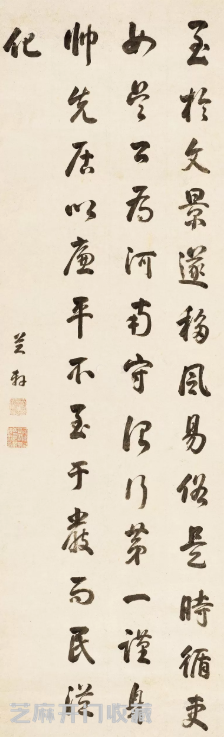 至於文景遂移風易俗是時循吏
如吳公為河南守治行第一謹身
帥先居以廉平不至于嚴而民從
化
芝麻开门收藏